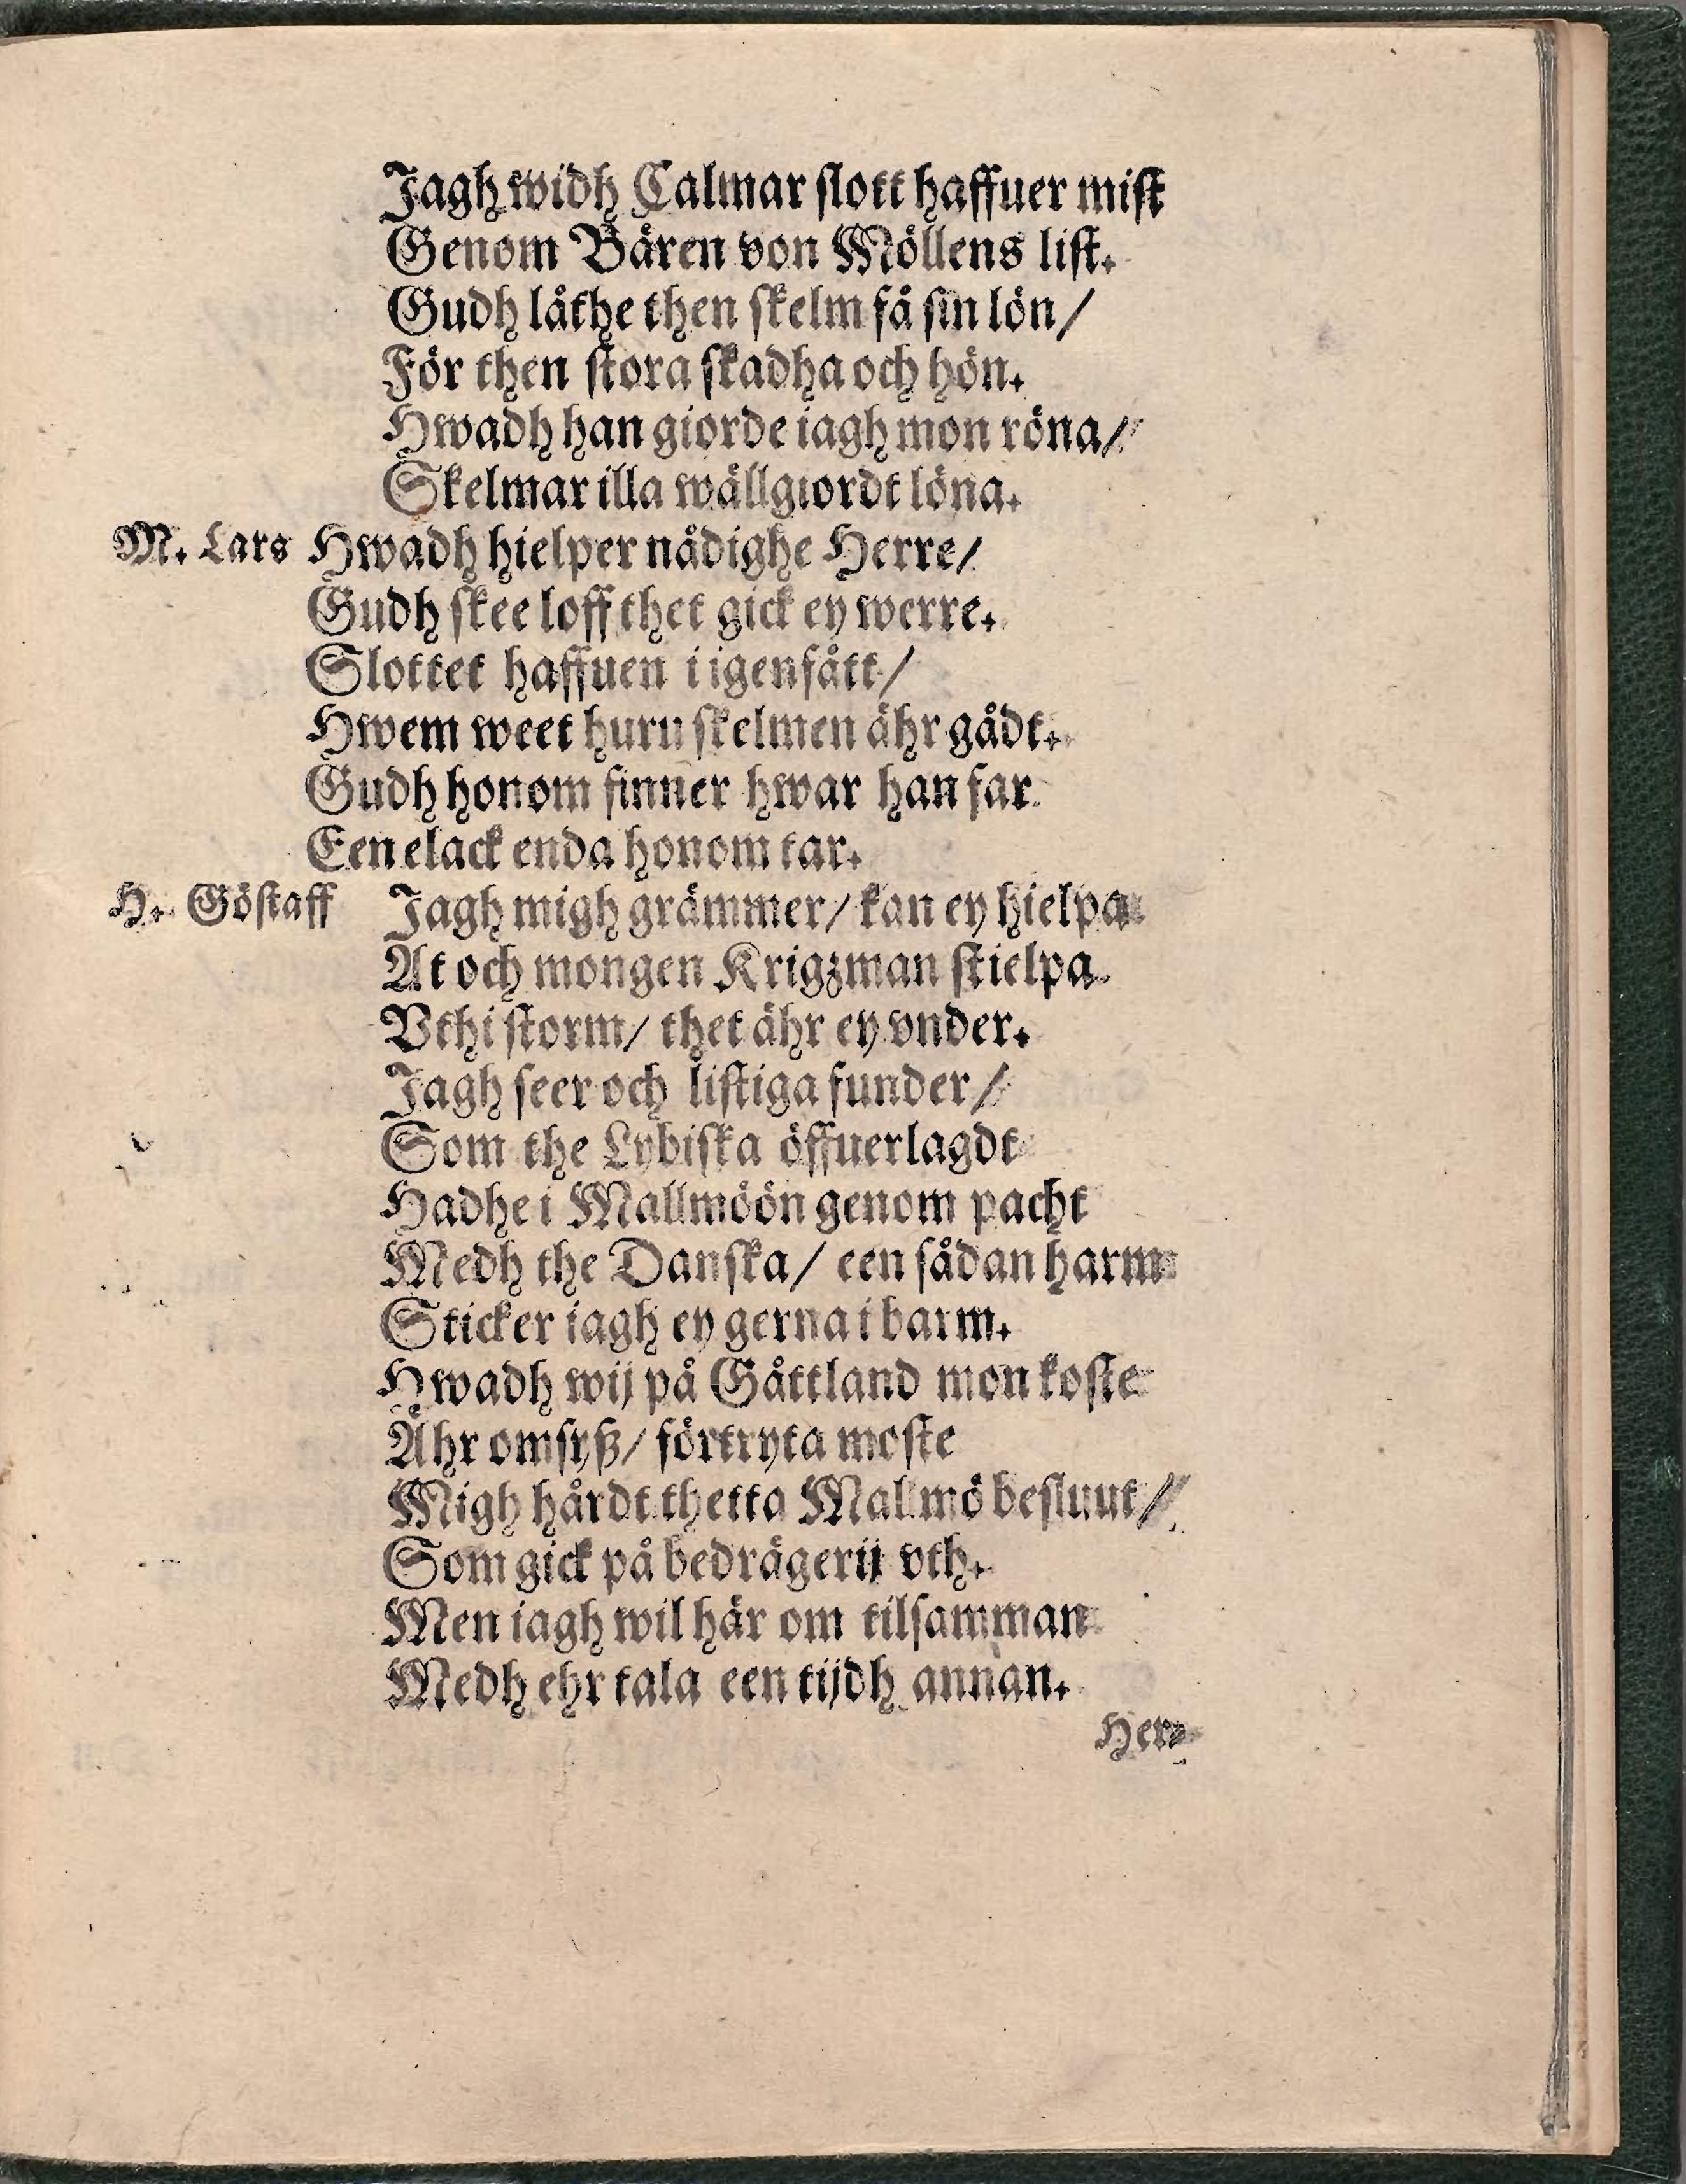 Jagh widh Calmar slott haffuer mist
Genom Bären von Möllens list.
Gudh låthe then skelm få sin lön/
För then stora skadha och hön.
Hwadh han giorde iagh mon röna/
Skelmar illa wällgiordt löna.
M. Lars Hwadh hielper nådighe Herre/
Gudh skee loff thet gick ey werre.
Slottet haffuen i igenfått/
Hwem weet huru skelmen ähr gådt.
Gudh honom finner hwar han far
Een elack enda honom tar.
H. Göstaff Jagh migh grämmer/ kan ey hielpa
At och mongen Krigzman stielpa
Vthi storm/ thet ähr ey vnder.
Jagh seer och listiga funder/
Som the Lybiska öffuerlagdt
Hadhe i Mallmöön genom pacht
Medh the Danska/ een sådan harm
Sticker iagh ey gerna i barm.
Hwadh wij på Gåttland mon koste
Ähr omsyß/ förtryta moste
Migh hårdt thetta Mallmö besluut/
Som gick på bedrägerij vth.
Men iagh wil här om tilsamman
Medh ehr tala een tijdh annan.
Her⸗